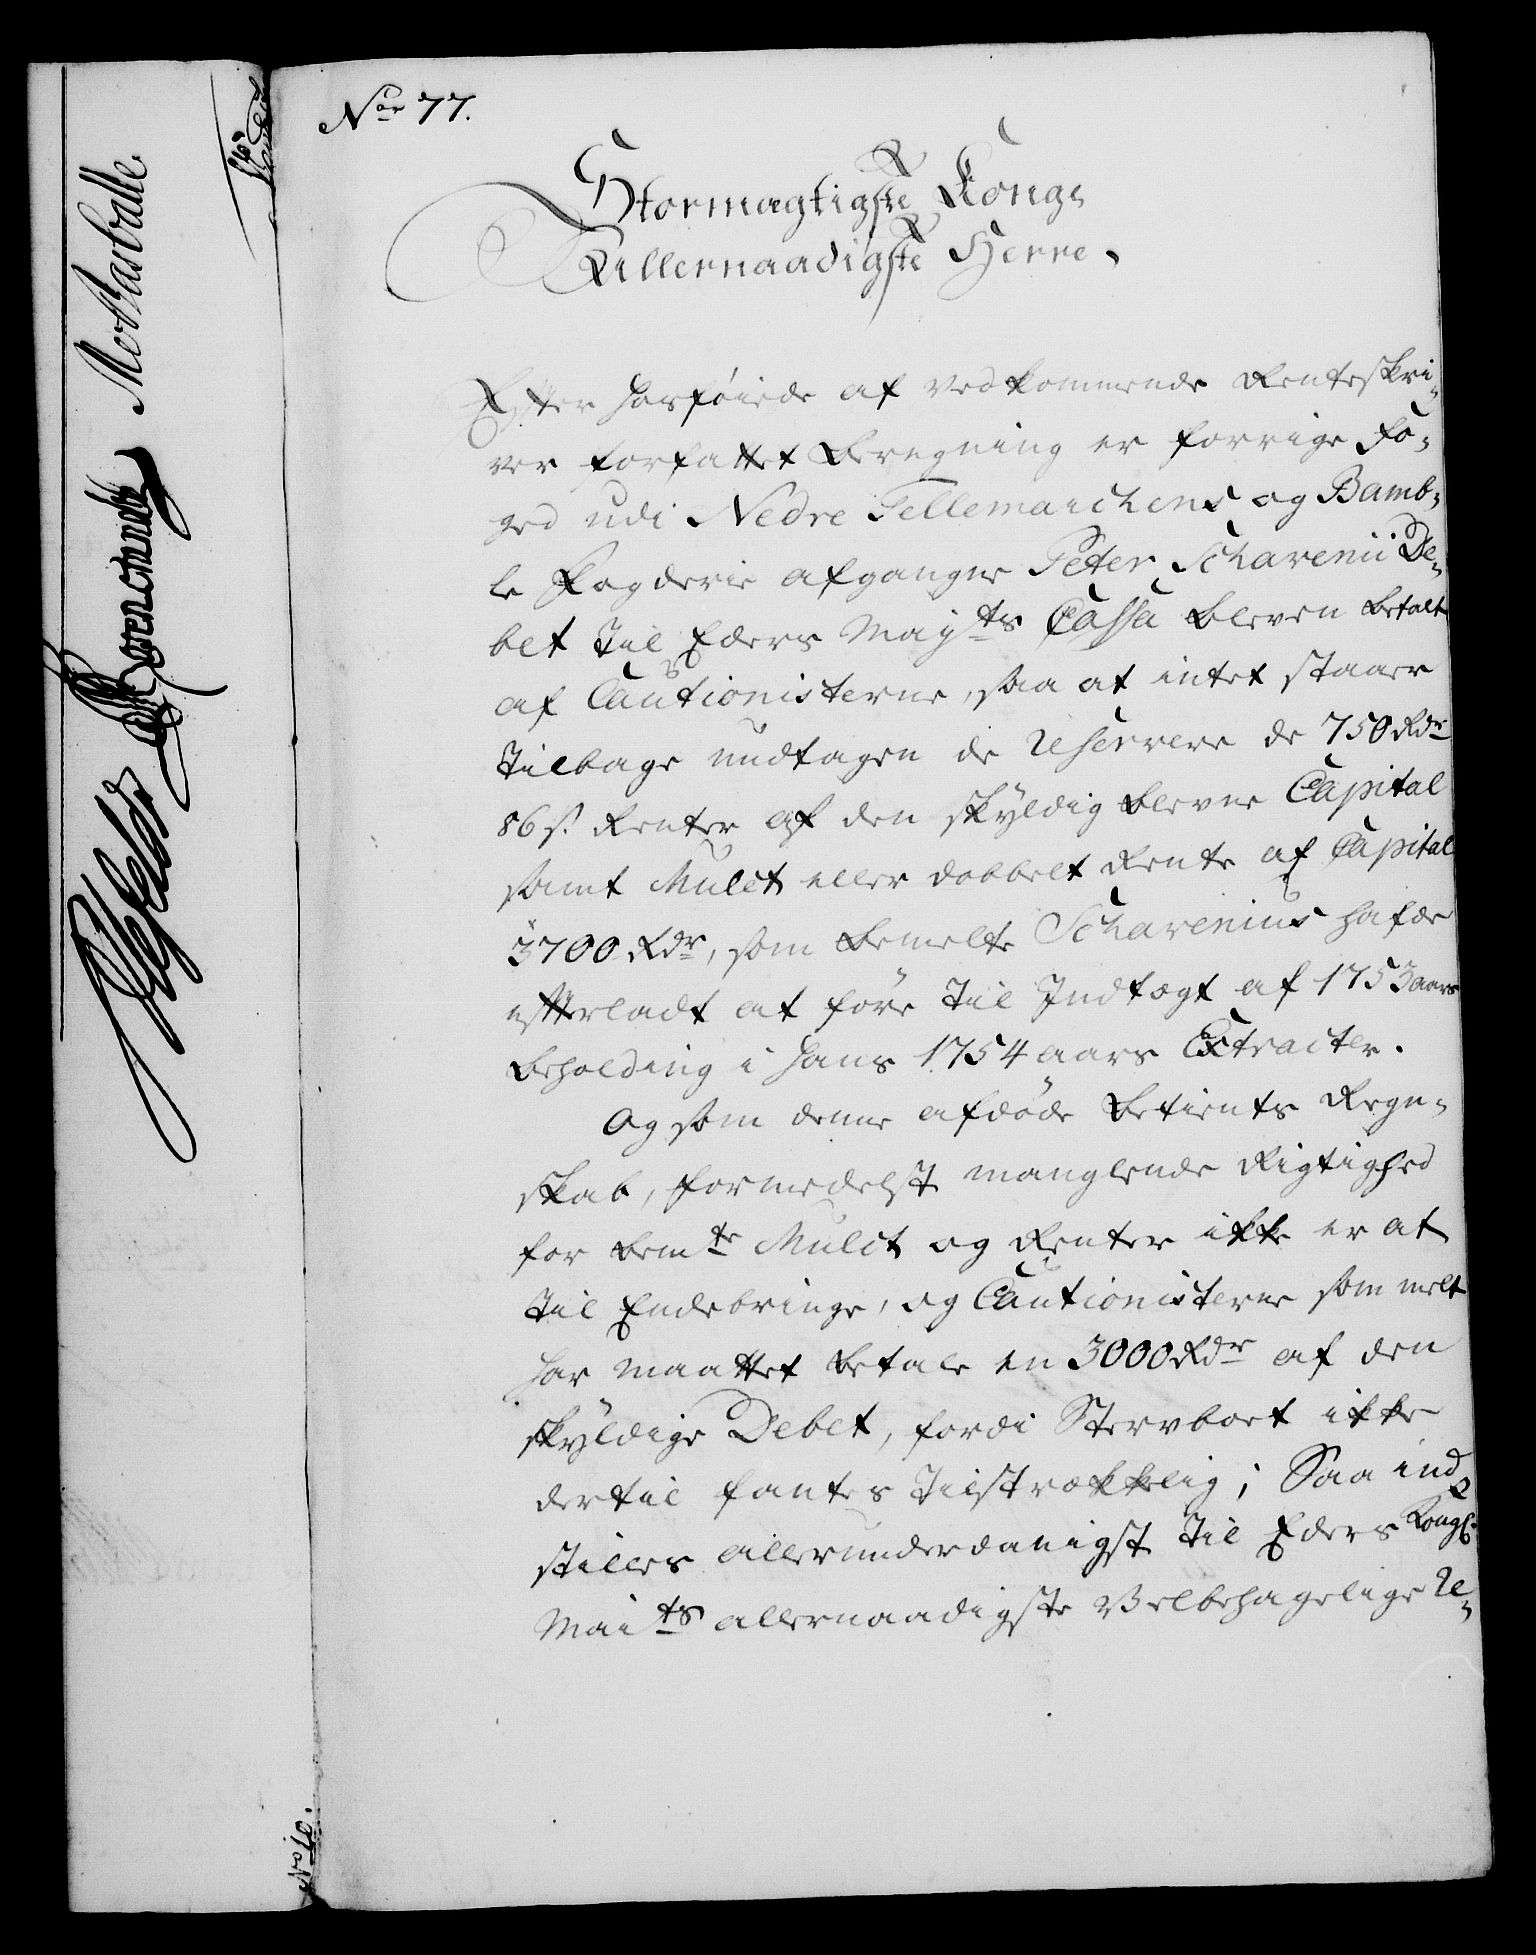 No 77.
Stormægtigste Konge
Allernaadigste Herre,
Efter hosføiede af vedkommende Renteskri-
ver forfattet Beregning er forrige Fo-
ged udi Nedre Tellemarchens og Bamb-
le Fogderie afgangne Peter Scharenii De-
bet til Eders Mayts Cassa bleven betalt
af Cautionisterne, saa at intet staaer
tilbage undtagen de reserverede 750 Rdr
86 s. Renter af den skyldig blevne Capital
samt Mulct eller dobbelt Rente af Capital
3700 Rdr, som bemelte Scharenius hafde
efterladt at føre til Indtægt af 1753 aars
beholding i hans 1754 aars Extracter.
Og som denne afdøde Betients Regn-
skab, formedelst manglende Rigtighed
for bemte Mulct og Renter ikke er at
til Endebringe, og Cautionisterne som melt
har maattet betale en 3000 Rdr af den
skyldige Debet, fordi Stervboet ikke
dertil fantes tilstrækkelig; Saa ind-
stilles allerunderdanigst til Eders Kongl.
Maits allernaadigste Velbehagelige Re-
No 76.